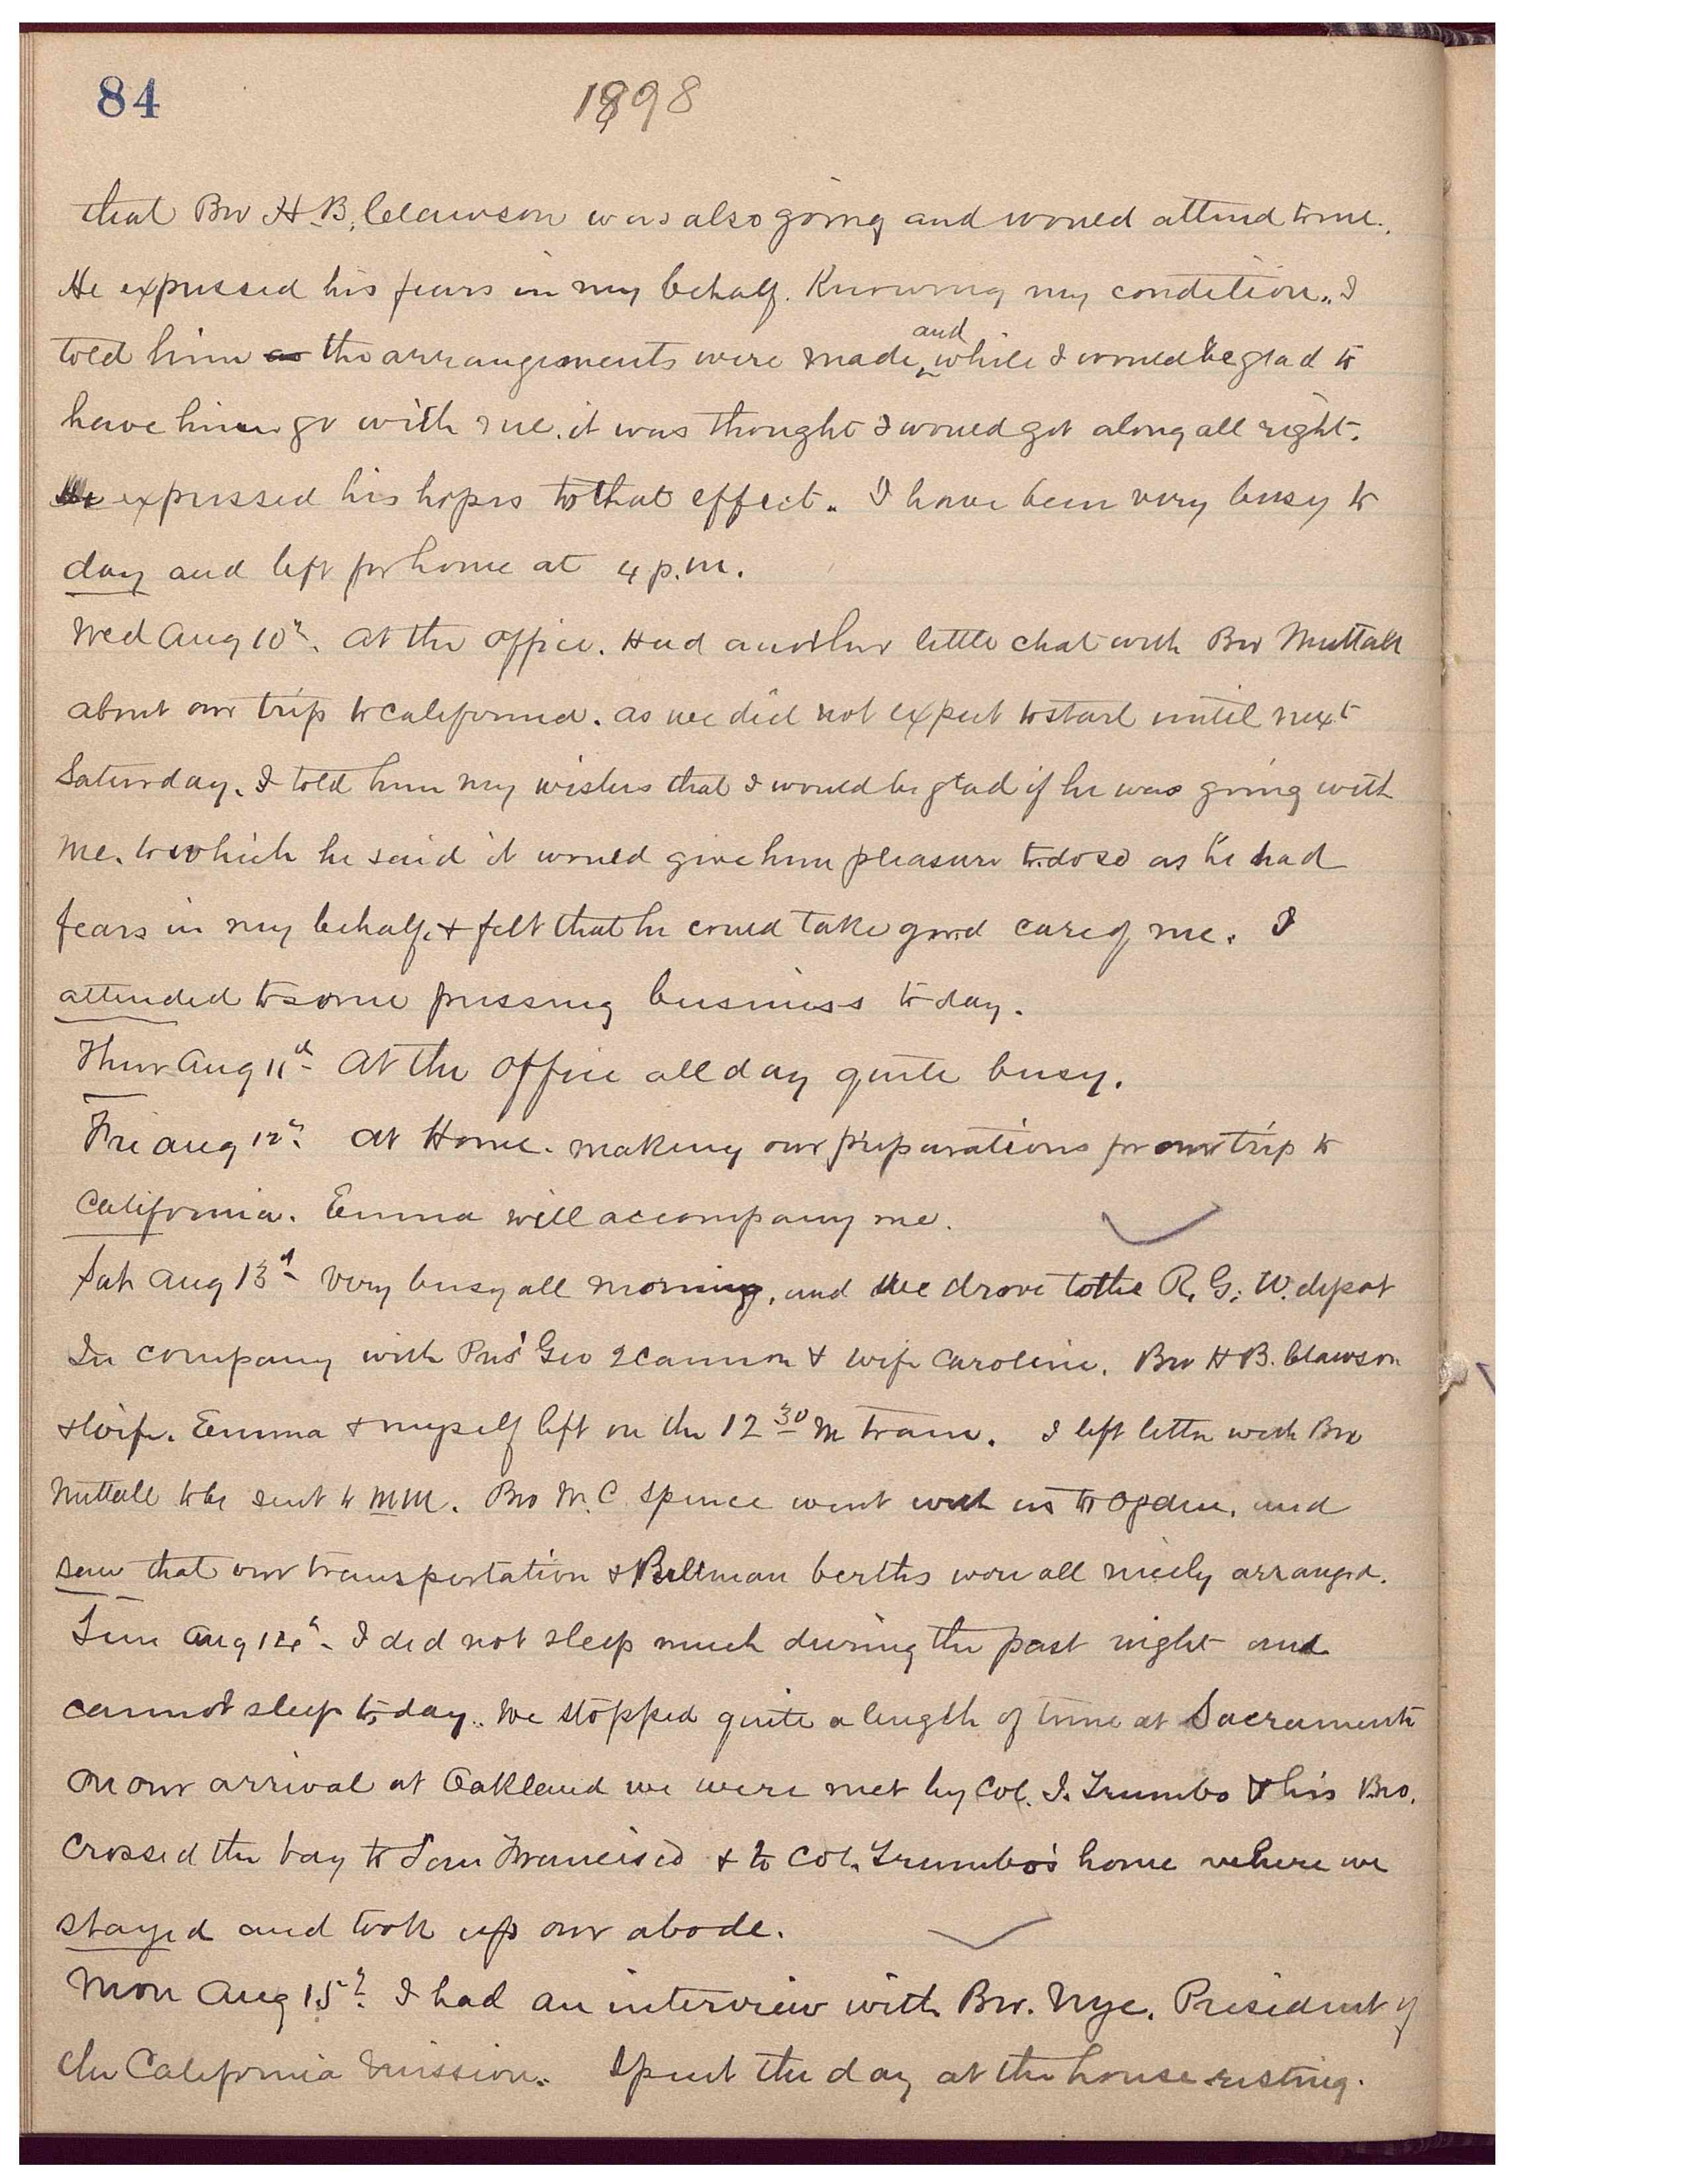 84
1898
that Bro H. B. Clawson was also going and would attend to me.
He expressed his fears in my behalf. Knowing my condition. I
told him as the arrangements were made, and while I would be glad to
have him go with me, it was thought I would got along all right.
He expressed his hopes to that effect. I have been very busy to
day and left for home at 4 p.m.
Wed Aug 10th. At the office. Had another little chat with Bro Nuttall
about our trip to California. as we did not expect to start until next
Saturday. I told him my wishes that I would be glad if he was going with
me. to which he said it would give him pleasure to do so as he had
fears in my behalf, & felt that he could take good care of me. I
attended to some pressing business to day.
Thur Aug 11th At the office all day quite busy.
Fri Aug 12th. At Home. making our preparations for our trip to
California. Emma will accompany me.
Sat Aug 13th Very busy all morning, and we drove to the R. G. W. depot
In company with Pres Geo Q Cannon & wife Caroline. Bro H B. Clawson
& wife. Emma & myself left on the 12 30 M train. I left letter with Bro
Nuttall to be sent to MM. Bro W. C. Spence went with us to Ogden, and
saw that our transportation & Pullman berths wore all nicely arranged.
Sun Aug 14th - I did not sleep much during the past night and
cannot sleep to day. We stopped quite a length of time at Sacramento
On our arrival at Oakland we were met by Col. I. Trumbo & his Bro.
Crossed the bay to San Francisco & to Col. Trumbo's home where we
stayed and took up our abode.
Mon Aug 15th. I had an interview with Bro. Nye. President of
the California Mission. Spent the day at the house resting.